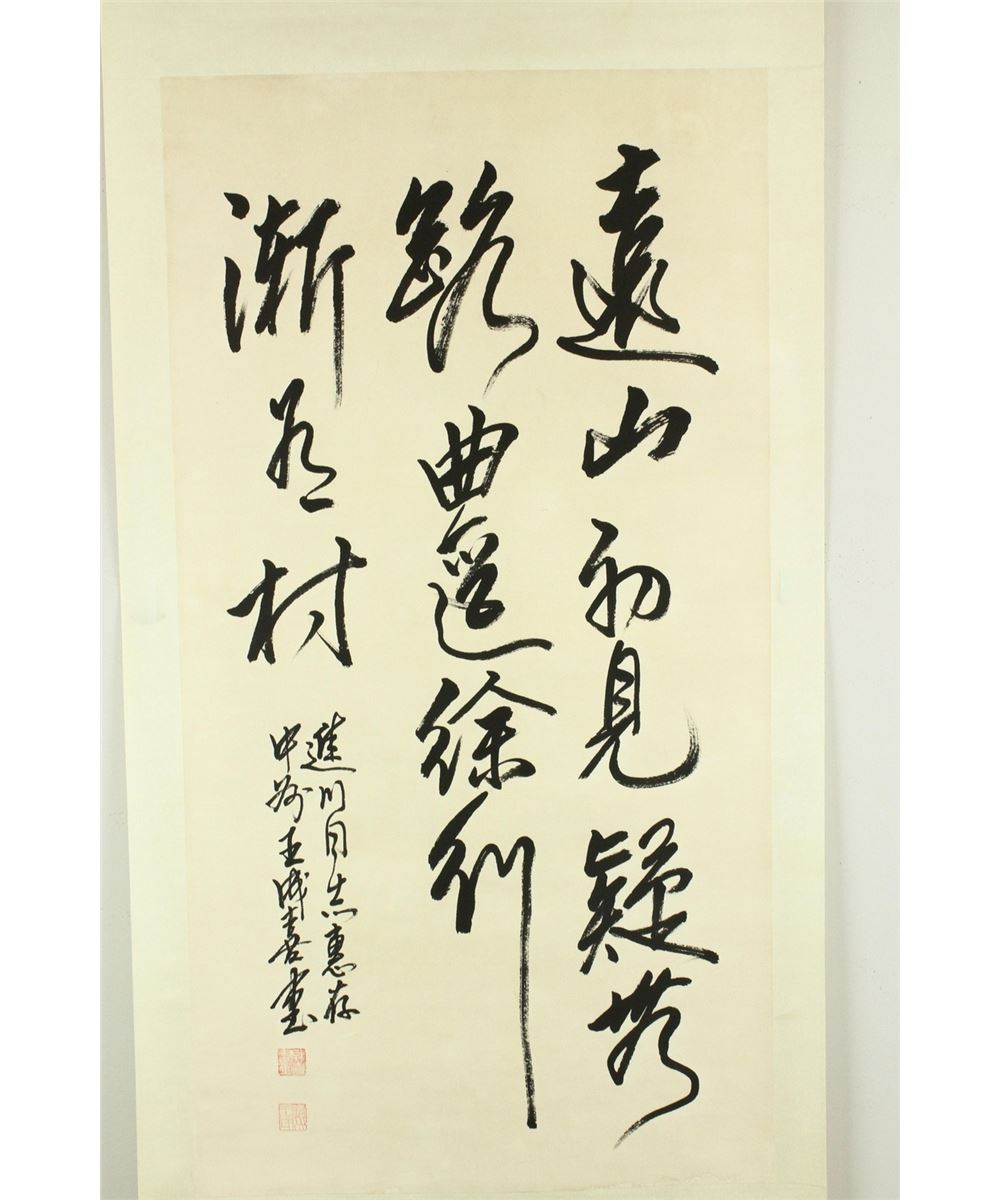 遠山初見疑無
路曲逕徐行
漸有村
進川同志惠存
中州王成喜書